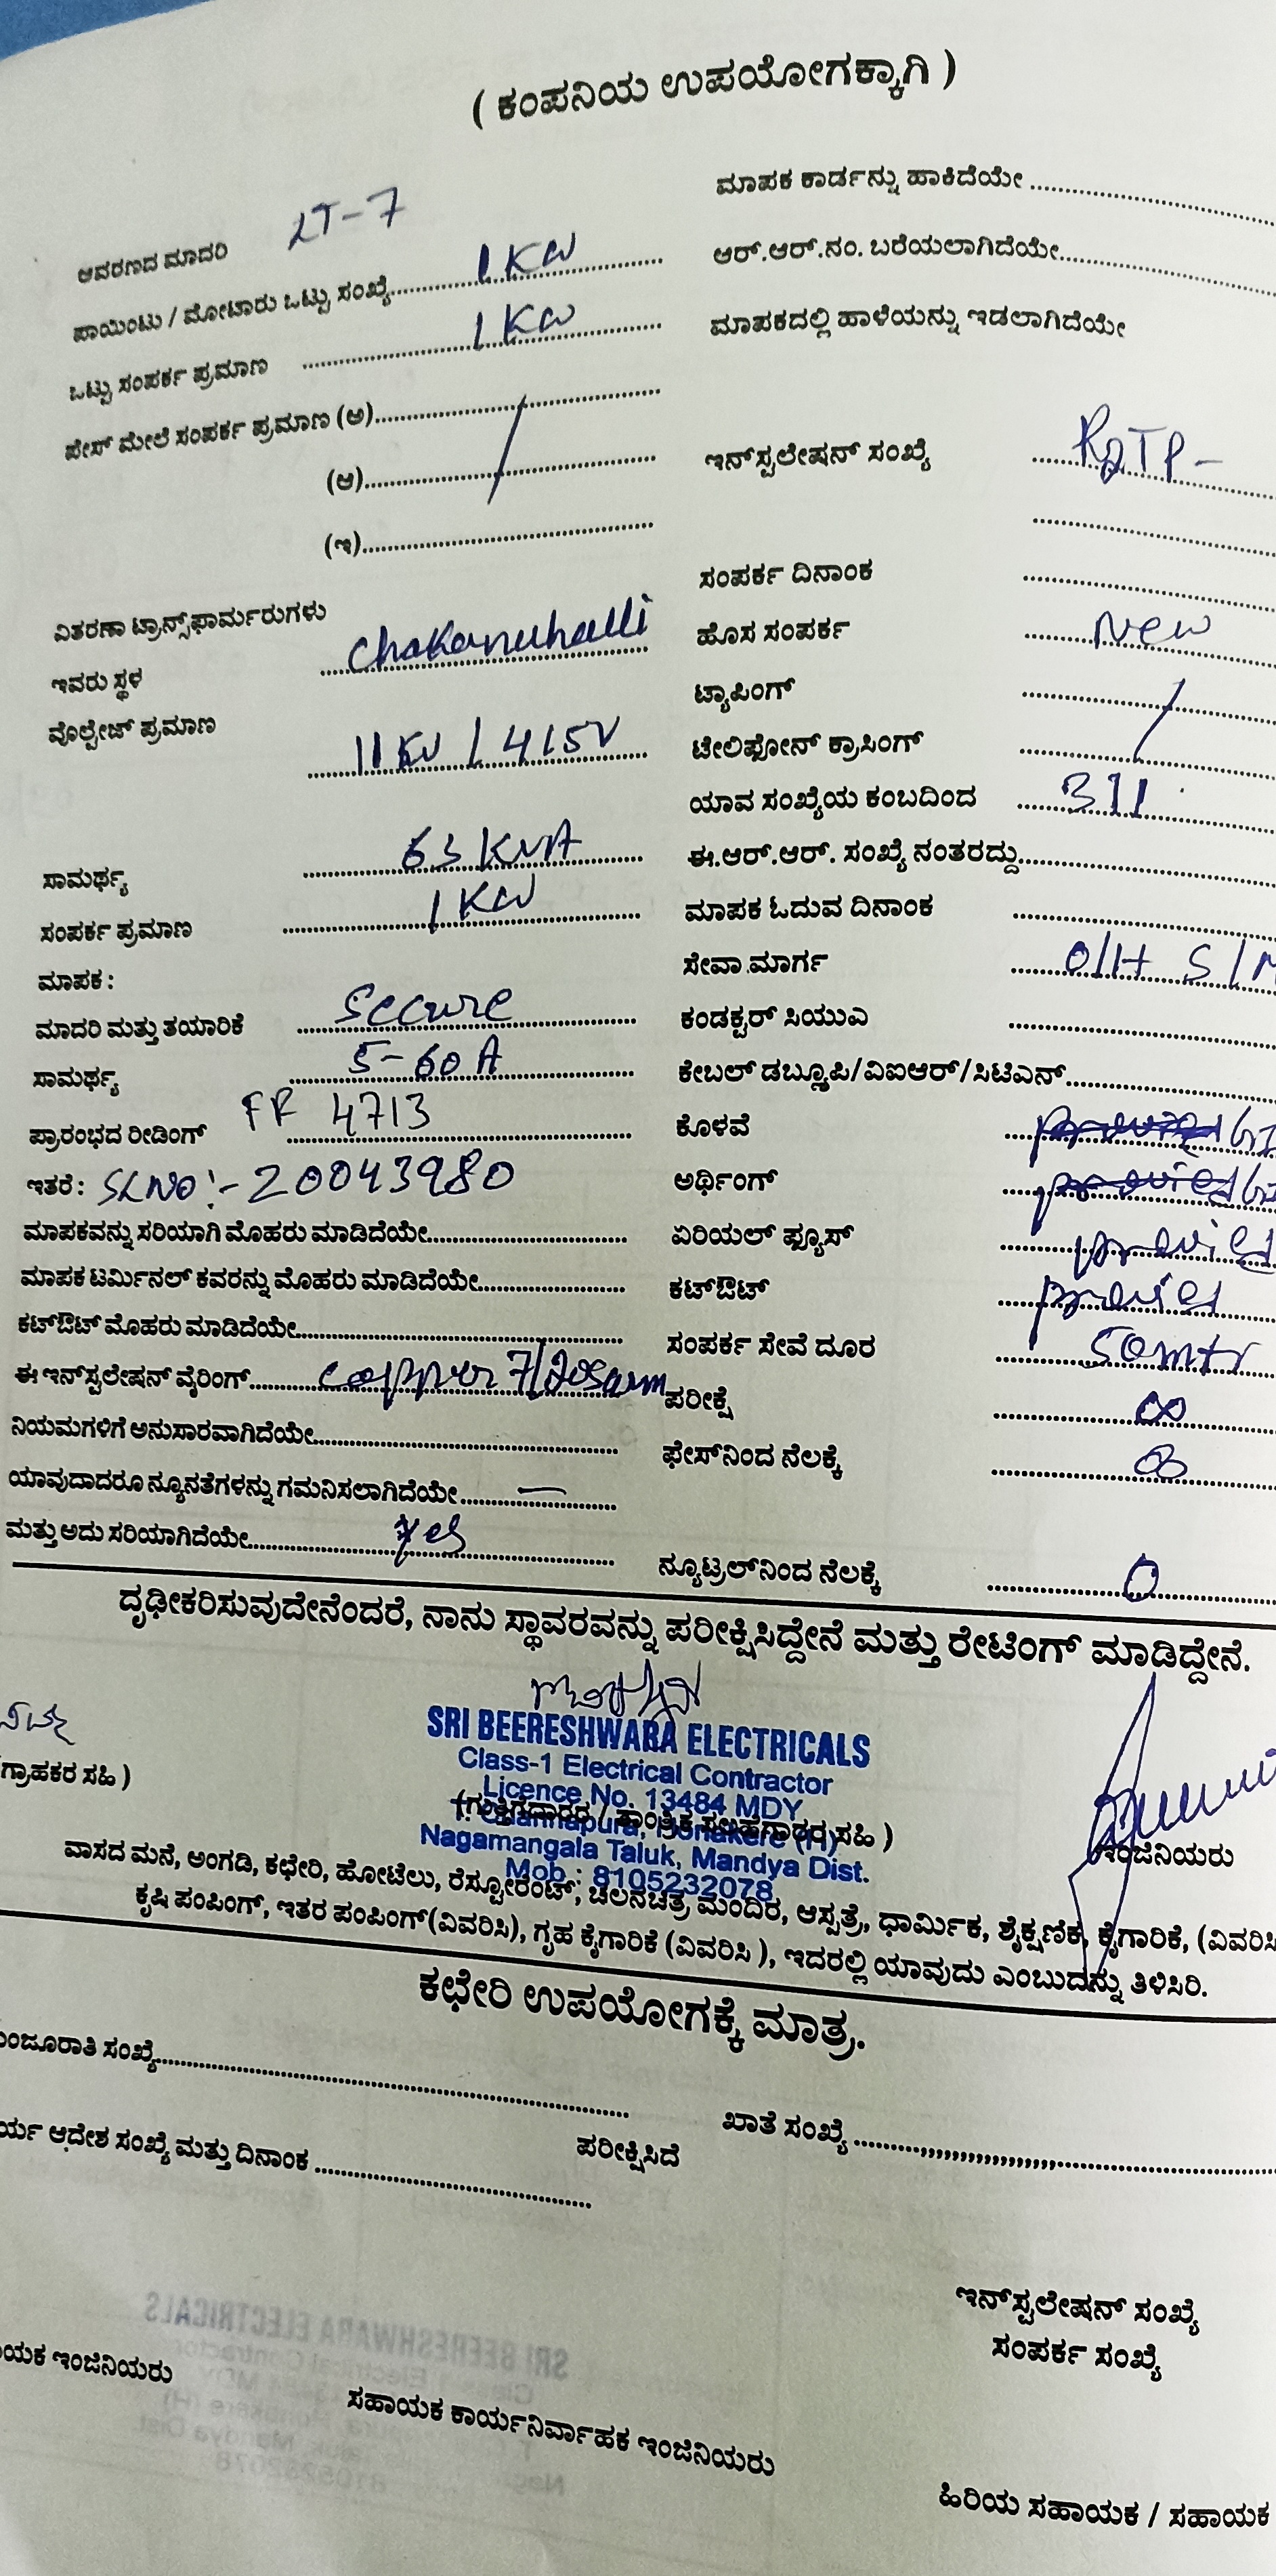 ( ಕಂಪನಿಯ ಉಪಯೋಗಕ್ಕಾಗಿ )
ಆವರಣದ ಮಾದರಿ LT-7
ಪಾಯಿಂಟು / ಮೋಟಾರು ಒಟ್ಟು ಸಂಖ್ಯೆ 1 KW
ಒಟ್ಟು ಸಂಪರ್ಕ ಪ್ರಮಾಣ 1 KW
ಫೇಸ್ ಮೇಲೆ ಸಂಪರ್ಕ ಪ್ರಮಾಣ (ಅ)
(ಆ)
(ಇ)
ವಿತರಣಾ ಟ್ರಾನ್ಸ್‌ಫಾರ್ಮರುಗಳು
ಇವರು ಸ್ಥಳ Chakenuhalli
ವೊಲ್ಟೇಜ್ ಪ್ರಮಾಣ 11 KV / 415V
ಸಾಮರ್ಥ್ಯ 63 KVA
ಸಂಪರ್ಕ ಪ್ರಮಾಣ 1 KW
ಮಾಪಕ :
ಮಾದರಿ ಮತ್ತು ತಯಾರಿಕೆ Secure
ಸಾಮರ್ಥ್ಯ 5-60 A
ಪ್ರಾರಂಭದ ರೀಡಿಂಗ್ FR 4713
ಇತರೆ : SLNO :- 20043980
ಮಾಪಕವನ್ನು ಸರಿಯಾಗಿ ಮೊಹರು ಮಾಡಿದೆಯೇ
ಮಾಪಕ ಟರ್ಮಿನಲ್ ಕವರನ್ನು ಮೊಹರು ಮಾಡಿದೆಯೇ
ಕಟ್‌ಔಟ್ ಮೊಹರು ಮಾಡಿದೆಯೇ
ಈ ಇನ್‌ಸ್ಟಲೇಷನ್ ವೈರಿಂಗ್ copper
ನಿಯಮಗಳಿಗೆ ಅನುಸಾರವಾಗಿದೆಯೇ
ಯಾವುದಾದರೂ ನ್ಯೂನತೆಗಳನ್ನು ಗಮನಿಸಲಾಗಿದೆಯೇ —
ಮತ್ತು ಅದು ಸರಿಯಾಗಿದೆಯೇ Yes
ಮಾಪಕ ಕಾರ್ಡನ್ನು ಹಾಕಿದೆಯೇ
ಆರ್.ಆರ್.ನಂ. ಬರೆಯಲಾಗಿದೆಯೇ
ಮಾಪಕದಲ್ಲಿ ಹಾಳೆಯನ್ನು ಇಡಲಾಗಿದೆಯೇ
ಇನ್‌ಸ್ಟಲೇಷನ್ ಸಂಖ್ಯೆ
ಸಂಪರ್ಕ ದಿನಾಂಕ
ಹೊಸ ಸಂಪರ್ಕ New
ಟ್ಯಾಪಿಂಗ್
ಟೇಲಿಫೋನ್ ಕ್ರಾಸಿಂಗ್
ಯಾವ ಸಂಖ್ಯೆಯ ಕಂಬದಿಂದ 311
ಈ.ಆರ್.ಆರ್. ಸಂಖ್ಯೆ ನಂತರದ್ದು
ಮಾಪಕ ಓದುವ ದಿನಾಂಕ
ಸೇವಾ ಮಾರ್ಗ O/H S/M
ಕಂಡಕ್ಟರ್ ಸಿಯುಎ
ಕೇಬಲ್ ಡಬ್ಲ್ಯೂಪಿ/ವಿಐಆರ್/ಸಿಟಿಎನ್
ಕೊಳವೆ GI
ಅರ್ಥಿಂಗ್ GI
ಏರಿಯಲ್ ಫ್ಯೂಸ್ provied
ಕಟ್‌ಔಟ್ provied
ಸಂಪರ್ಕ ಸೇವೆ ದೂರ 50mtr
ಪರೀಕ್ಷೆ ∞
ಫೇಸ್‌ನಿಂದ ನೆಲಕ್ಕೆ ∞
ನ್ಯೂಟ್ರಲ್‌ನಿಂದ ನೆಲಕ್ಕೆ 0
ದೃಢೀಕರಿಸುವುದೇನೆಂದರೆ, ನಾನು ಸ್ಥಾವರವನ್ನು ಪರೀಕ್ಷಿಸಿದ್ದೇನೆ ಮತ್ತು ರೇಟಿಂಗ್ ಮಾಡಿದ್ದೇನೆ.
SRI BEERESHWARA ELECTRICALS
Class-1 Electrical Contractor
Licence No. 13484 MDY
T. Channapura, Honakere (H)
Nagamangala Taluk, Mandya Dist.
Mob : 8105232078
ಗ್ರಾಹಕರ ಸಹಿ )
(ಗುತ್ತಿಗೆದಾರರ / ತಾಂತ್ರಿಕ ಸಲಹೆಗಾರರ ಸಹಿ )
ಇಂಜಿನಿಯರು
ವಾಸದ ಮನೆ, ಅಂಗಡಿ, ಕಛೇರಿ, ಹೋಟೆಲು, ರೆಸ್ಟೋರೆಂಟ್, ಚಲನಚಿತ್ರ ಮಂದಿರ, ಆಸ್ಪತ್ರೆ, ಧಾರ್ಮಿಕ, ಶೈಕ್ಷಣಿಕ, ಕೈಗಾರಿಕೆ, (ವಿವರಿಸಿ
ಕೃಷಿ ಪಂಪಿಂಗ್, ಇತರ ಪಂಪಿಂಗ್(ವಿವರಿಸಿ), ಗೃಹ ಕೈಗಾರಿಕೆ (ವಿವರಿಸಿ ), ಇದರಲ್ಲಿ ಯಾವುದು ಎಂಬುದನ್ನು ತಿಳಿಸಿರಿ.
ಕಛೇರಿ ಉಪಯೋಗಕ್ಕೆ ಮಾತ್ರ.
ಮಂಜೂರಾತಿ ಸಂಖ್ಯೆ
ರ್ಯ ಆದೇಶ ಸಂಖ್ಯೆ ಮತ್ತು ದಿನಾಂಕ
ಪರೀಕ್ಷಿಸಿದೆ
ಖಾತೆ ಸಂಖ್ಯೆ
ಇನ್‌ಸ್ಟಲೇಷನ್ ಸಂಖ್ಯೆ
ಸಂಪರ್ಕ ಸಂಖ್ಯೆ
ಯಕ ಇಂಜಿನಿಯರು
ಸಹಾಯಕ ಕಾರ್ಯನಿರ್ವಾಹಕ ಇಂಜಿನಿಯರು
ಹಿರಿಯ ಸಹಾಯಕ / ಸಹಾಯಕ